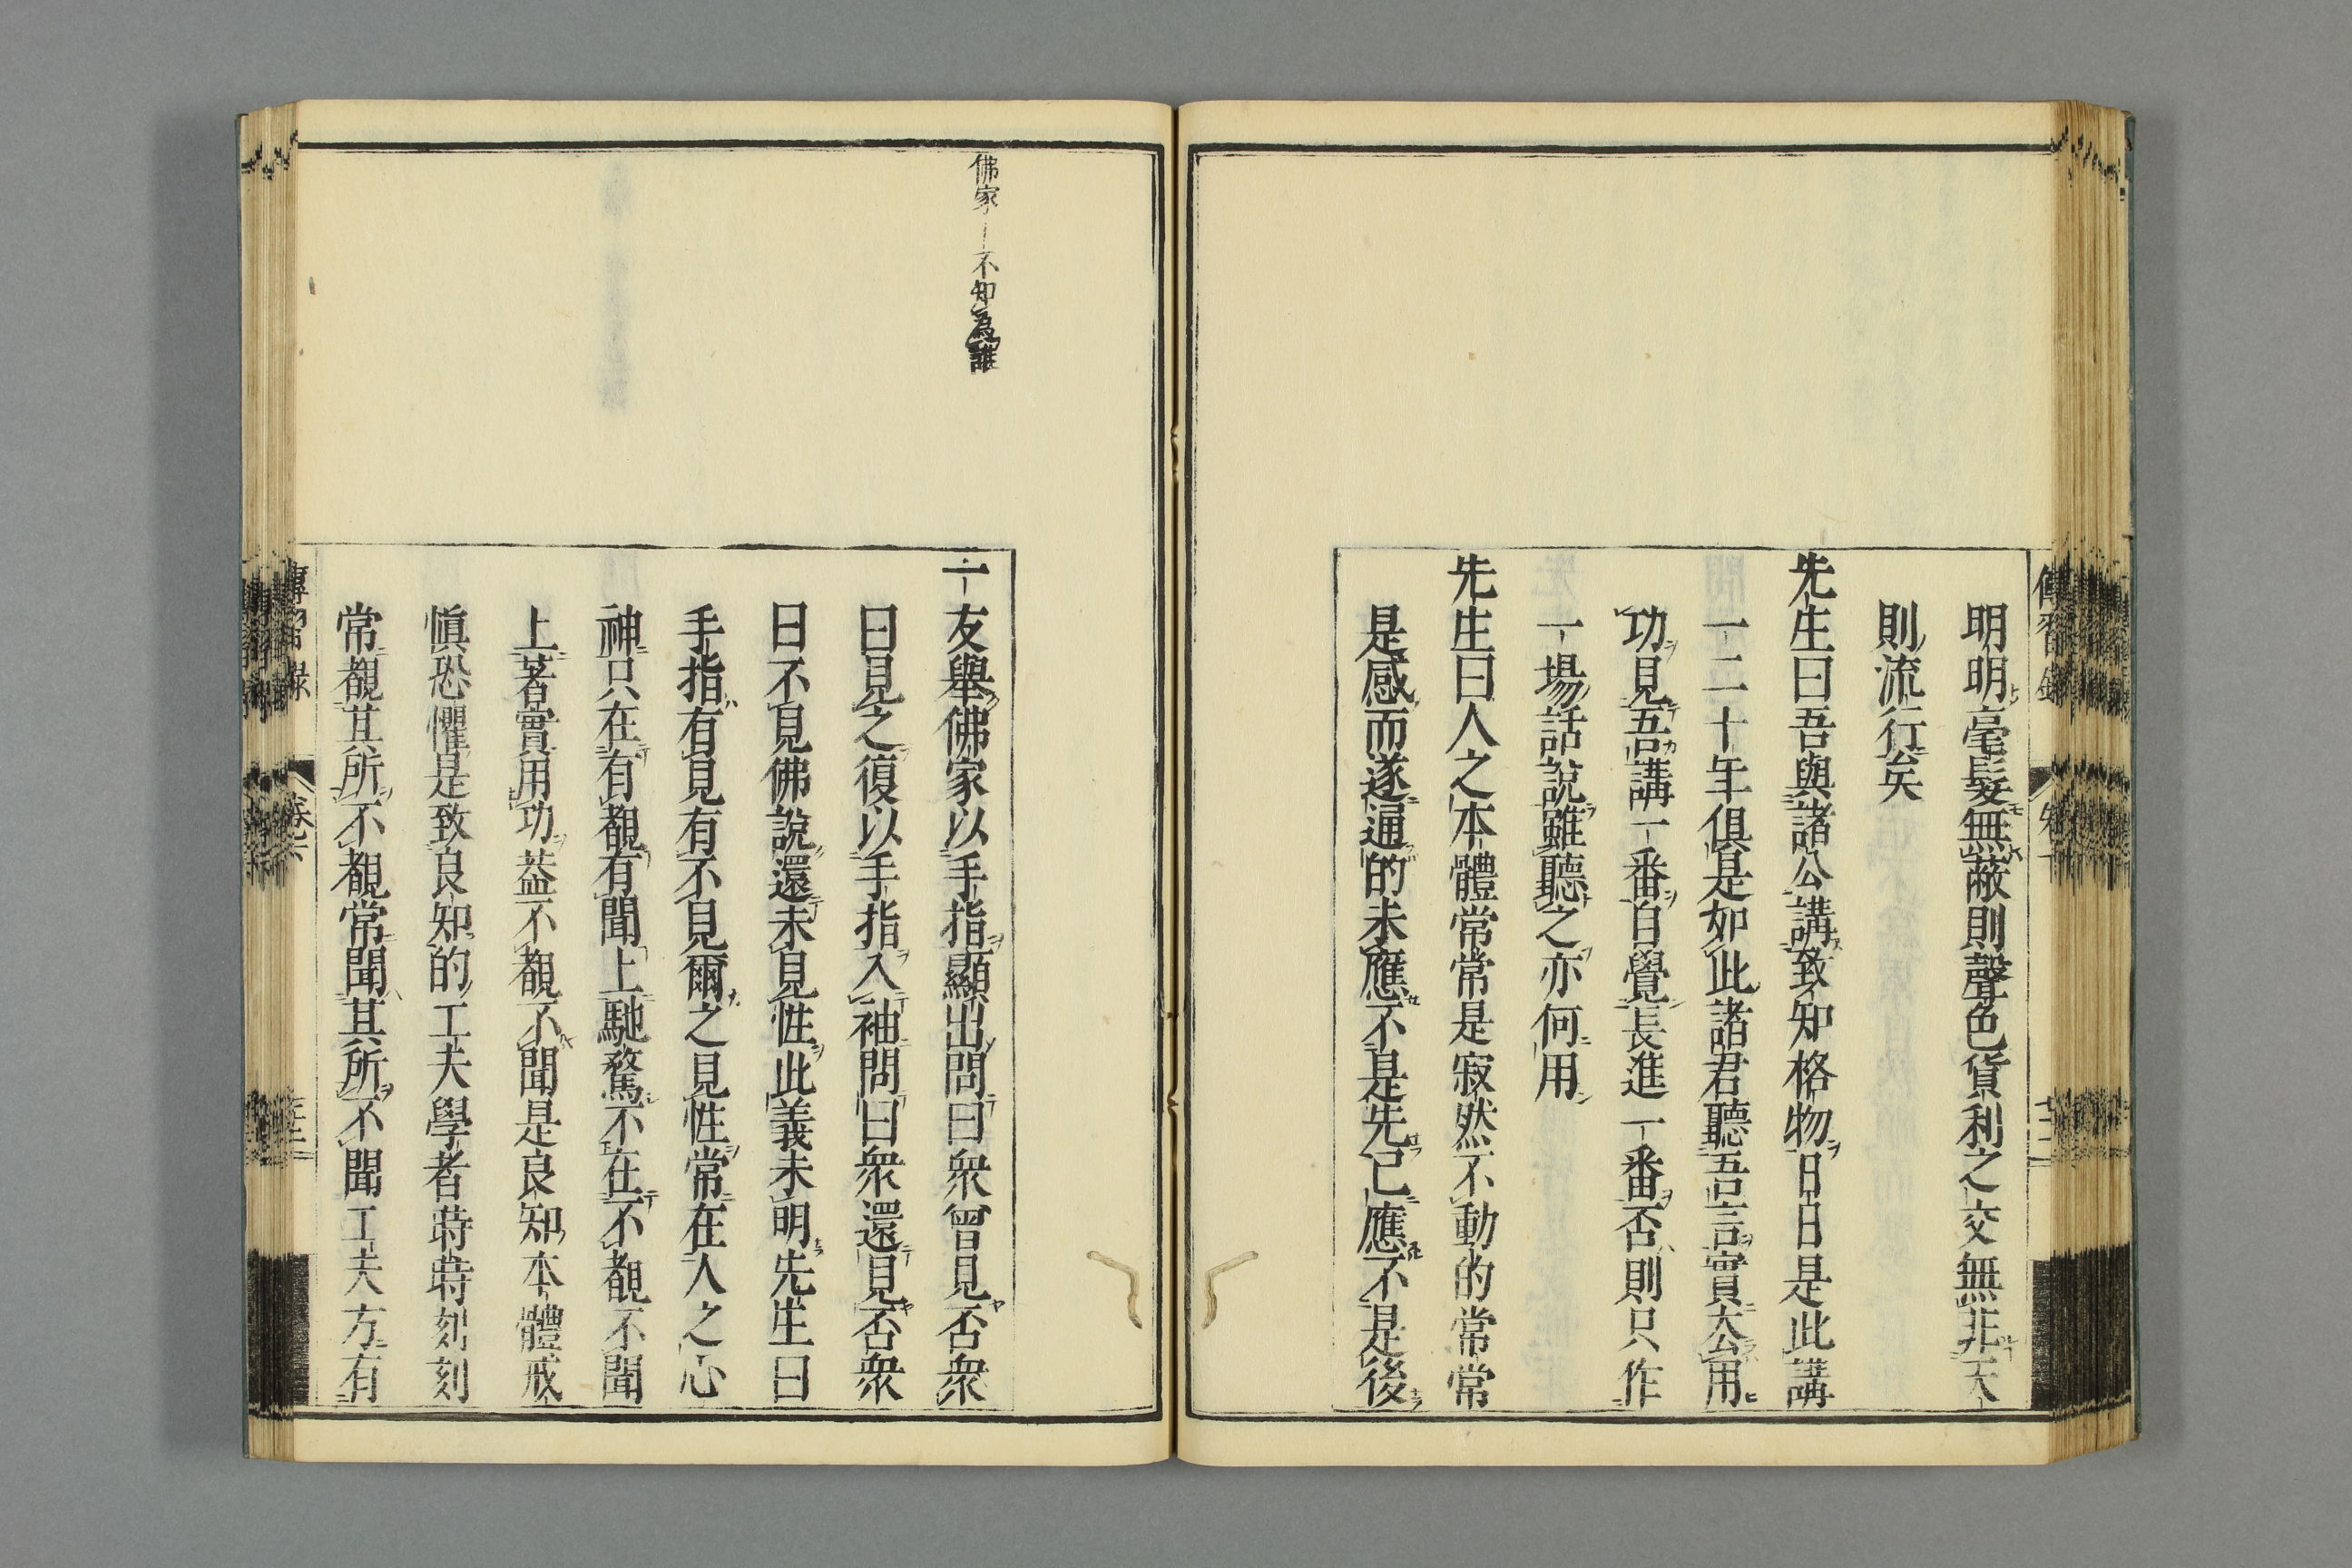 明明毫髮無蔽則聲色貨利之交無非天
則流行矣
先生曰吾與諸公講致知格物日日是此講
一二十年俱是如此諸君聽吾言實去用
功見吾講一番自覺長進一番否則只作
一場話說雖聽之亦何用
先生曰人之本體常常是寂然不動的常常
是感而遂通的未應不是先已應不是後
佛家―不知為誰
一友舉佛家以手指顯出問曰衆曾見否衆
曰見之復以手指入袖問曰衆還見否衆
曰不見佛說還未見性此義未明先生曰
手指有見有不見爾之見性常在人之心
神只在有覩有聞上馳騖不在不覩不聞
上著實用功葢不覩不聞是良知本體戒
愼恐懼是致良知的工夫學者時時刻刻
常覩其所不覩常聞其所不聞工夫方有